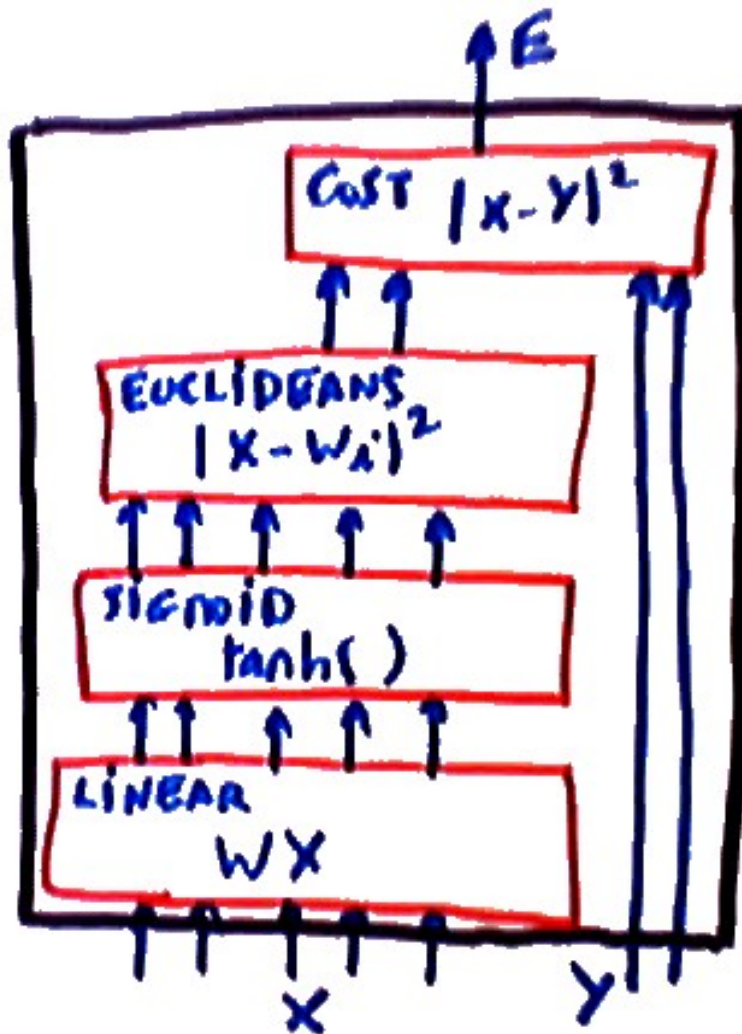 E
COST |X-Y|²
EUCLIDEANS
|X-Wi|²
SIGMOID
tanh( )
LINEAR
WX
X Y